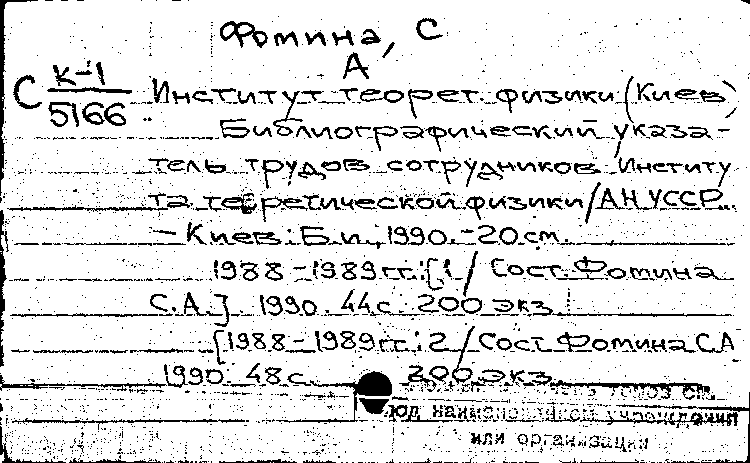 Фомина, С
А
С К-1/5166
Институт теорет. физики (Киев)
Библиографический указа-
тель трудов сотрудников Институ
та теоретической физики / АН УССР.
– Киев: Б.и., 1990. – 20 см.
1988 – 1989 гг.: [1 / Сост. Фомина
С.А.] 1990. 44 с. 200 экз.
[1988 – 1989 гг.: 2 / Сост. Фомина С.А
1990. 48 с. 200 экз.
см.
под наименованием учреждения
или организации